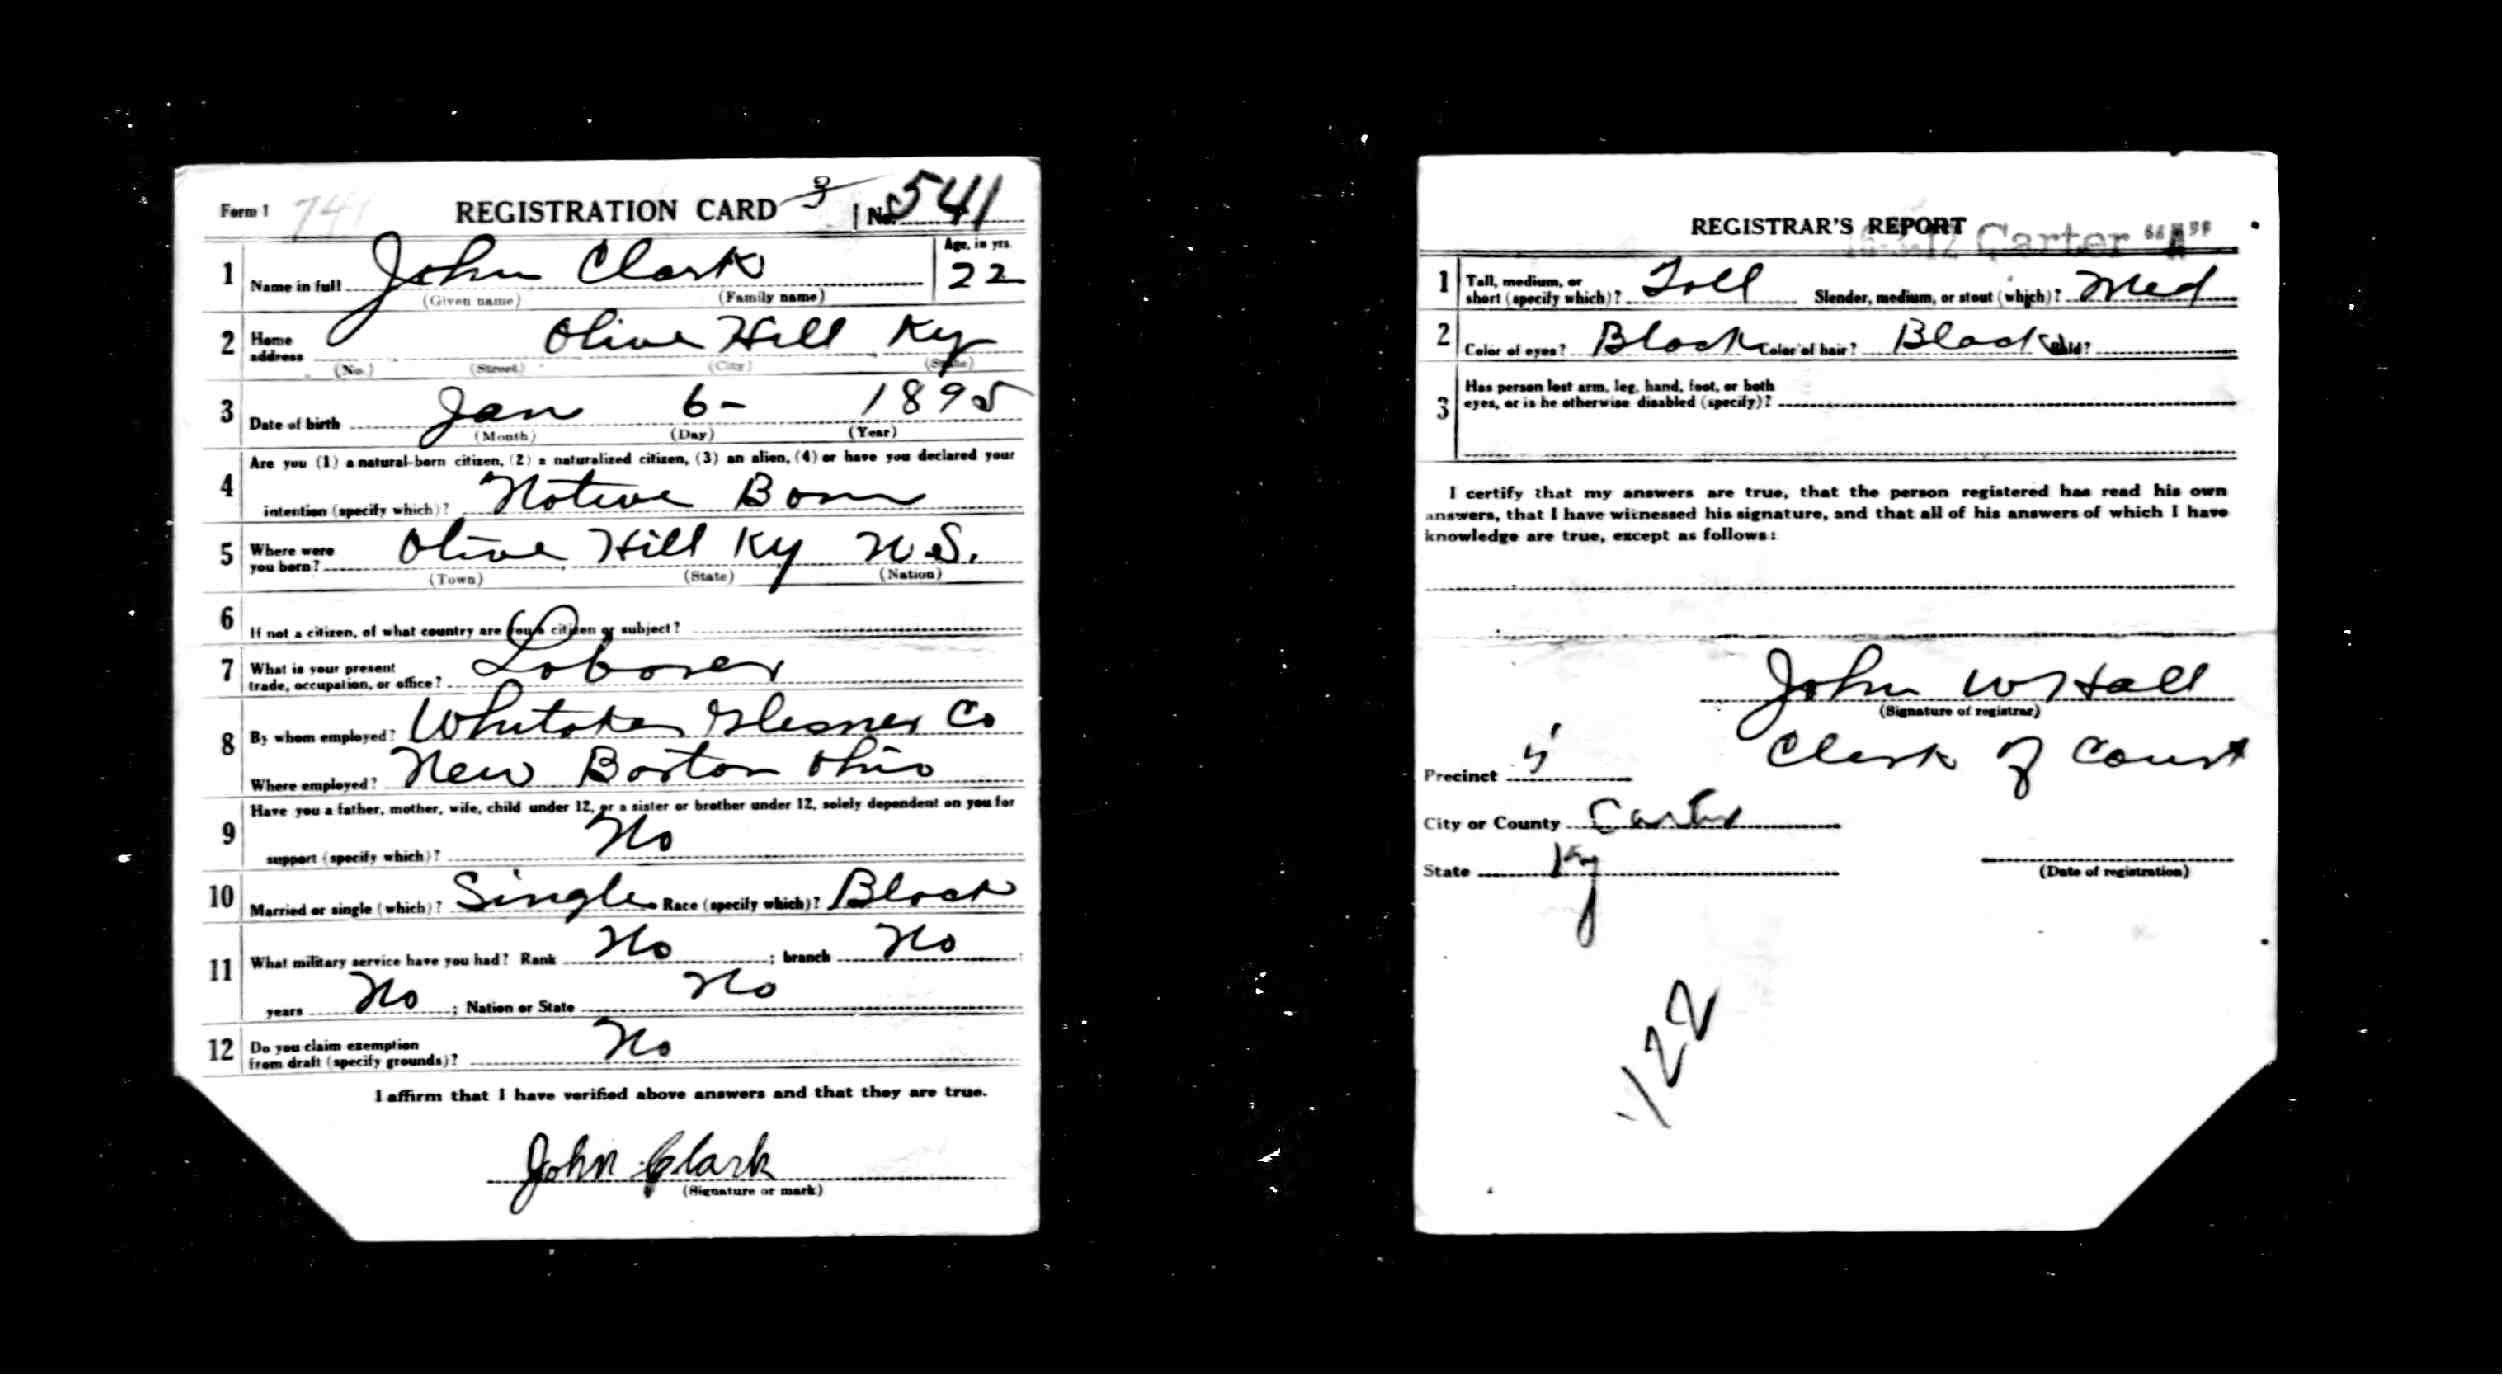 Form 1 741 REGISTRATION CARD 3 No. 541
1 Name in full John Clark Age, in yrs. 22
(Given name) (Family name)
2 Home address Olive Hill Ky
(No.) (Street) (City) (State)
3 Date of birth Jan 6- 1895
(Month) (Day) (Year)
4 Are you (1) a natural-born citizen, (2) a naturalized citizen, (3) an alien, (4) or have you declared your
intention (specify which)? Native Born
5 Where were you born? Olive Hill Ky U.S.
(Town) (State) (Nation)
6 If not a citizen, of what country are you a citizen or subject?
7 What is your present trade, occupation, or office? Laborer
8 By whom employed? Whitaker Glesner Co
Where employed? New Boston Ohio
9 Have you a father, mother, wife, child under 12, or a sister or brother under 12, solely dependent on you for
support (specify which)? No
10 Married or single (which)? Single Race (specify which)? Black
11 What military service have you had? Rank No ; branch No
years No ; Nation or State No
12 Do you claim exemption from draft (specify grounds)? No
I affirm that I have verified above answers and that they are true.
John Clark
(Signature or mark)
REGISTRAR'S REPORT
Carter "A"
1 Tall, medium, or short (specify which)? Tall Slender, medium, or stout (which)? Med
2 Color of eyes? Black Color of hair? Black Bald?
3 Has person lost arm, leg, hand, foot, or both
eyes, or is he otherwise disabled (specify)?
I certify that my answers are true, that the person registered has read his own
answers, that I have witnessed his signature, and that all of his answers of which I have
knowledge are true, except as follows:
John W Hall
(Signature of registrar)
Clerk of Court
Precinct 5
City or County Carter
State Ky
(Date of registration)
122